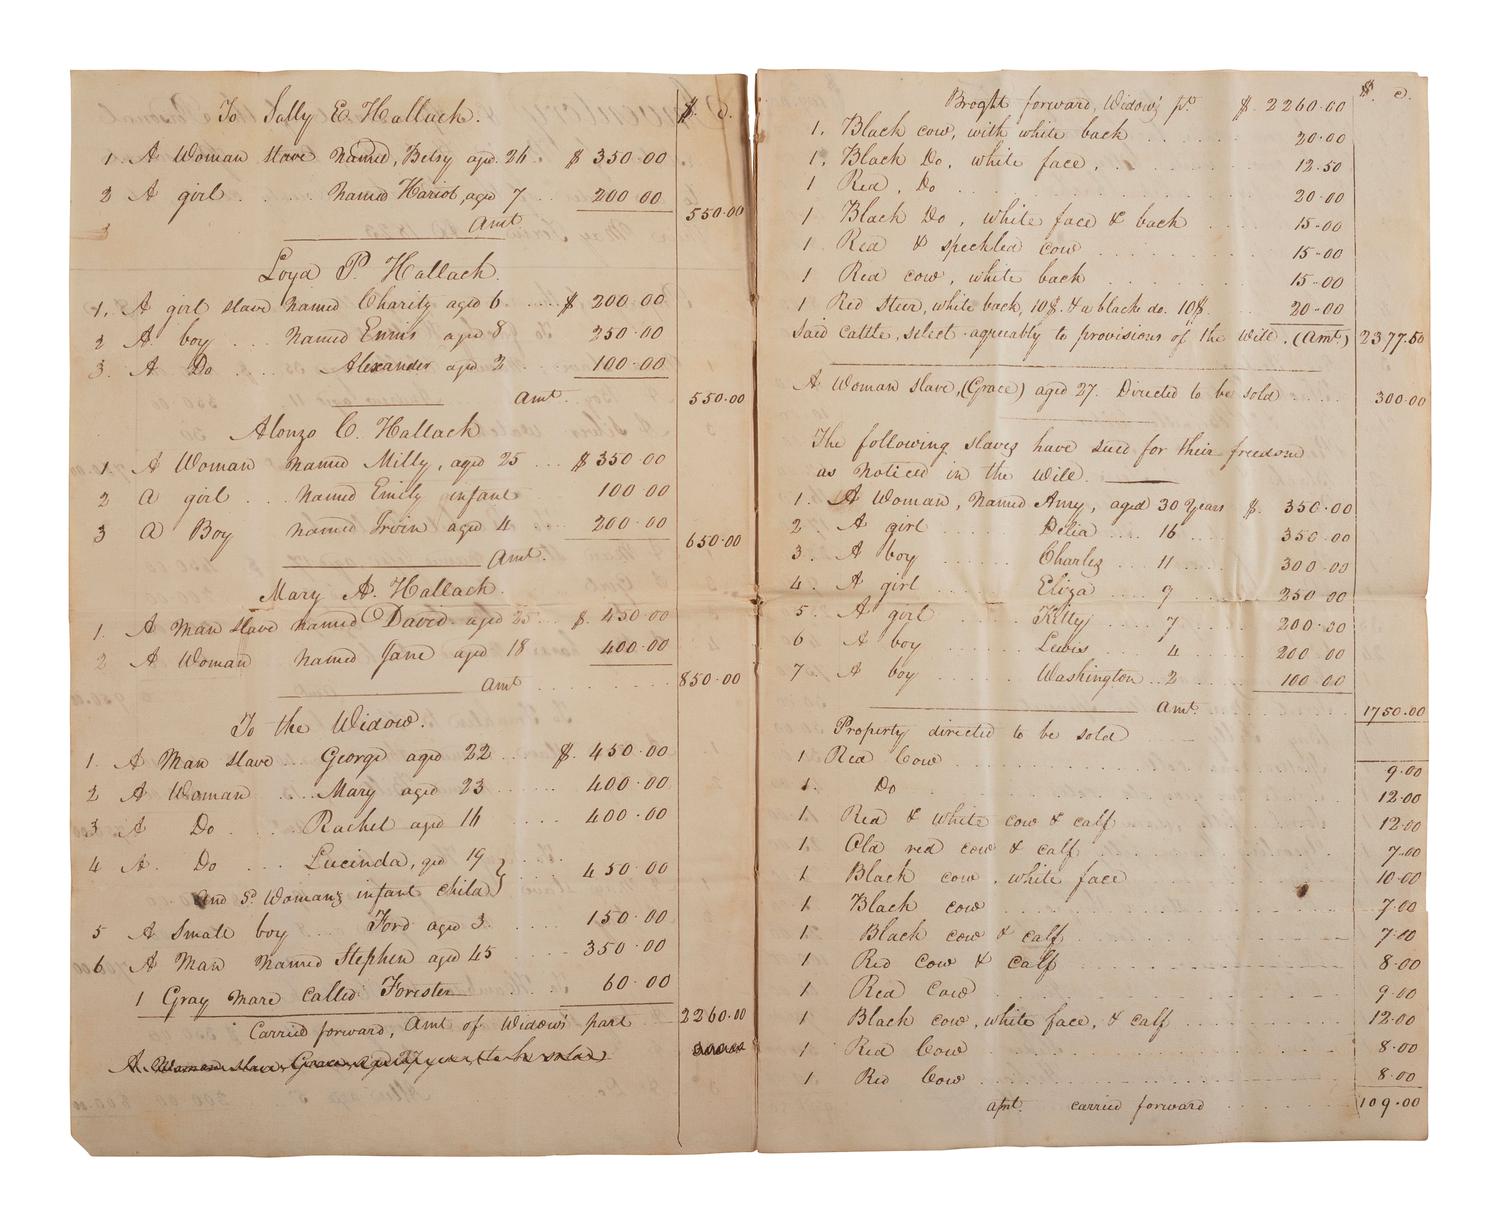 To Sally E. Hallack.
$. c.
1. A Woman slave Named, Betsy aged 26 .. $ 350.00
2 A girl ...... Named Hariot, aged 7 ... 200 00
3 Amt 550.00
Loyd P. Hallack.
1. A girl slave Named Charity aged 6 .... $ 200.00
2 A boy ... Named Ennis aged 8 250.00
3. A Do .... Alexander aged 2 ... 100.00
Amt. 550.00
Alonzo C. Hallack
1. A Woman Named Milly, aged 25 ... $ 350 00
2 A girl ... Named Emily infant 100 00
3 A Boy Named Irvin aged 4 ... 200.00
Amt. 650.00
Mary A. Hallack.
1. A Man slave named David aged 25 ... $. 450.00
2 A Woman Named Jane aged 18 400.00
Amt ......... 850.00
To the Widow.
1. A Man slave ... George aged 22 .... $. 450.00
2 A Woman .... Mary aged 23 ..... 400.00
3 A Do .... Rachel aged 16 400.00
4 A. Do .... Lucinda, aged 19 } 450.00
and Sd. Womans infant child
5 A Small boy Ford aged 3. 150.00
6. A Man Named Stephen aged 45 350.00
1 Gray mare called Forester 60.00
Carried forward, Amt of Widow's part 2260.00
A Woman slave, Grace aged 27 years, to be sold
$. c.
Broght forward, Widow's pt. $. 2260.00
1. Black cow, with white back ...... 20.00
1. Black Do, white face, ....... 12.50
1 Red, Do ........ 20.00
1 Black Do, white face & back .... 15-00
1 Red & speckled cow ....... 15-00
1 Red cow, white back ....... 15-00
1 Red steer, white back, 10$. & a black do. 10$. 20-00
Said Cattle, select agreeably to provisions of the Will. (Amt) 2377.50
A Woman slave, (Grace) aged 27. Directed to be sold .... 300.00
The following slaves have sued for their freedom
as Noticed in the Will.
1. A Woman, Named Amy, aged 30 Years $. 350.00
2. A girl Delia .... 16 .... 350.00
3. A boy ...... Charles ... 11 .... 300.00
4. A girl ...... Eliza ... 9 .... 250 00
5. A girl ...... Kitty .... 7 .... 200.00
6 A boy ....... Lewis .... 4 .... 200 00
7 A boy ....... Washington .. 2 .... 100 00
Amt. 1750.00
Property directed to be sold
1 Red Cow ........ 9.00
1. Do ........ 12.00
1. Red & white cow & calf ...... 12.00
1. Old red cow & calf ....... 7.00
1. Black cow, white face ...... 10.00
1. Black cow ........ 7.00
1 Black cow & calf ....... 7.00
1. Red cow & calf ....... 8.00
1. Red Cow ........ 9.00
1 Black cow, white face, & calf ....... 12.00
1 Red Cow ........ 8.00
1 Red Cow ........ 8.00
amt. carried forward ..... 109.00